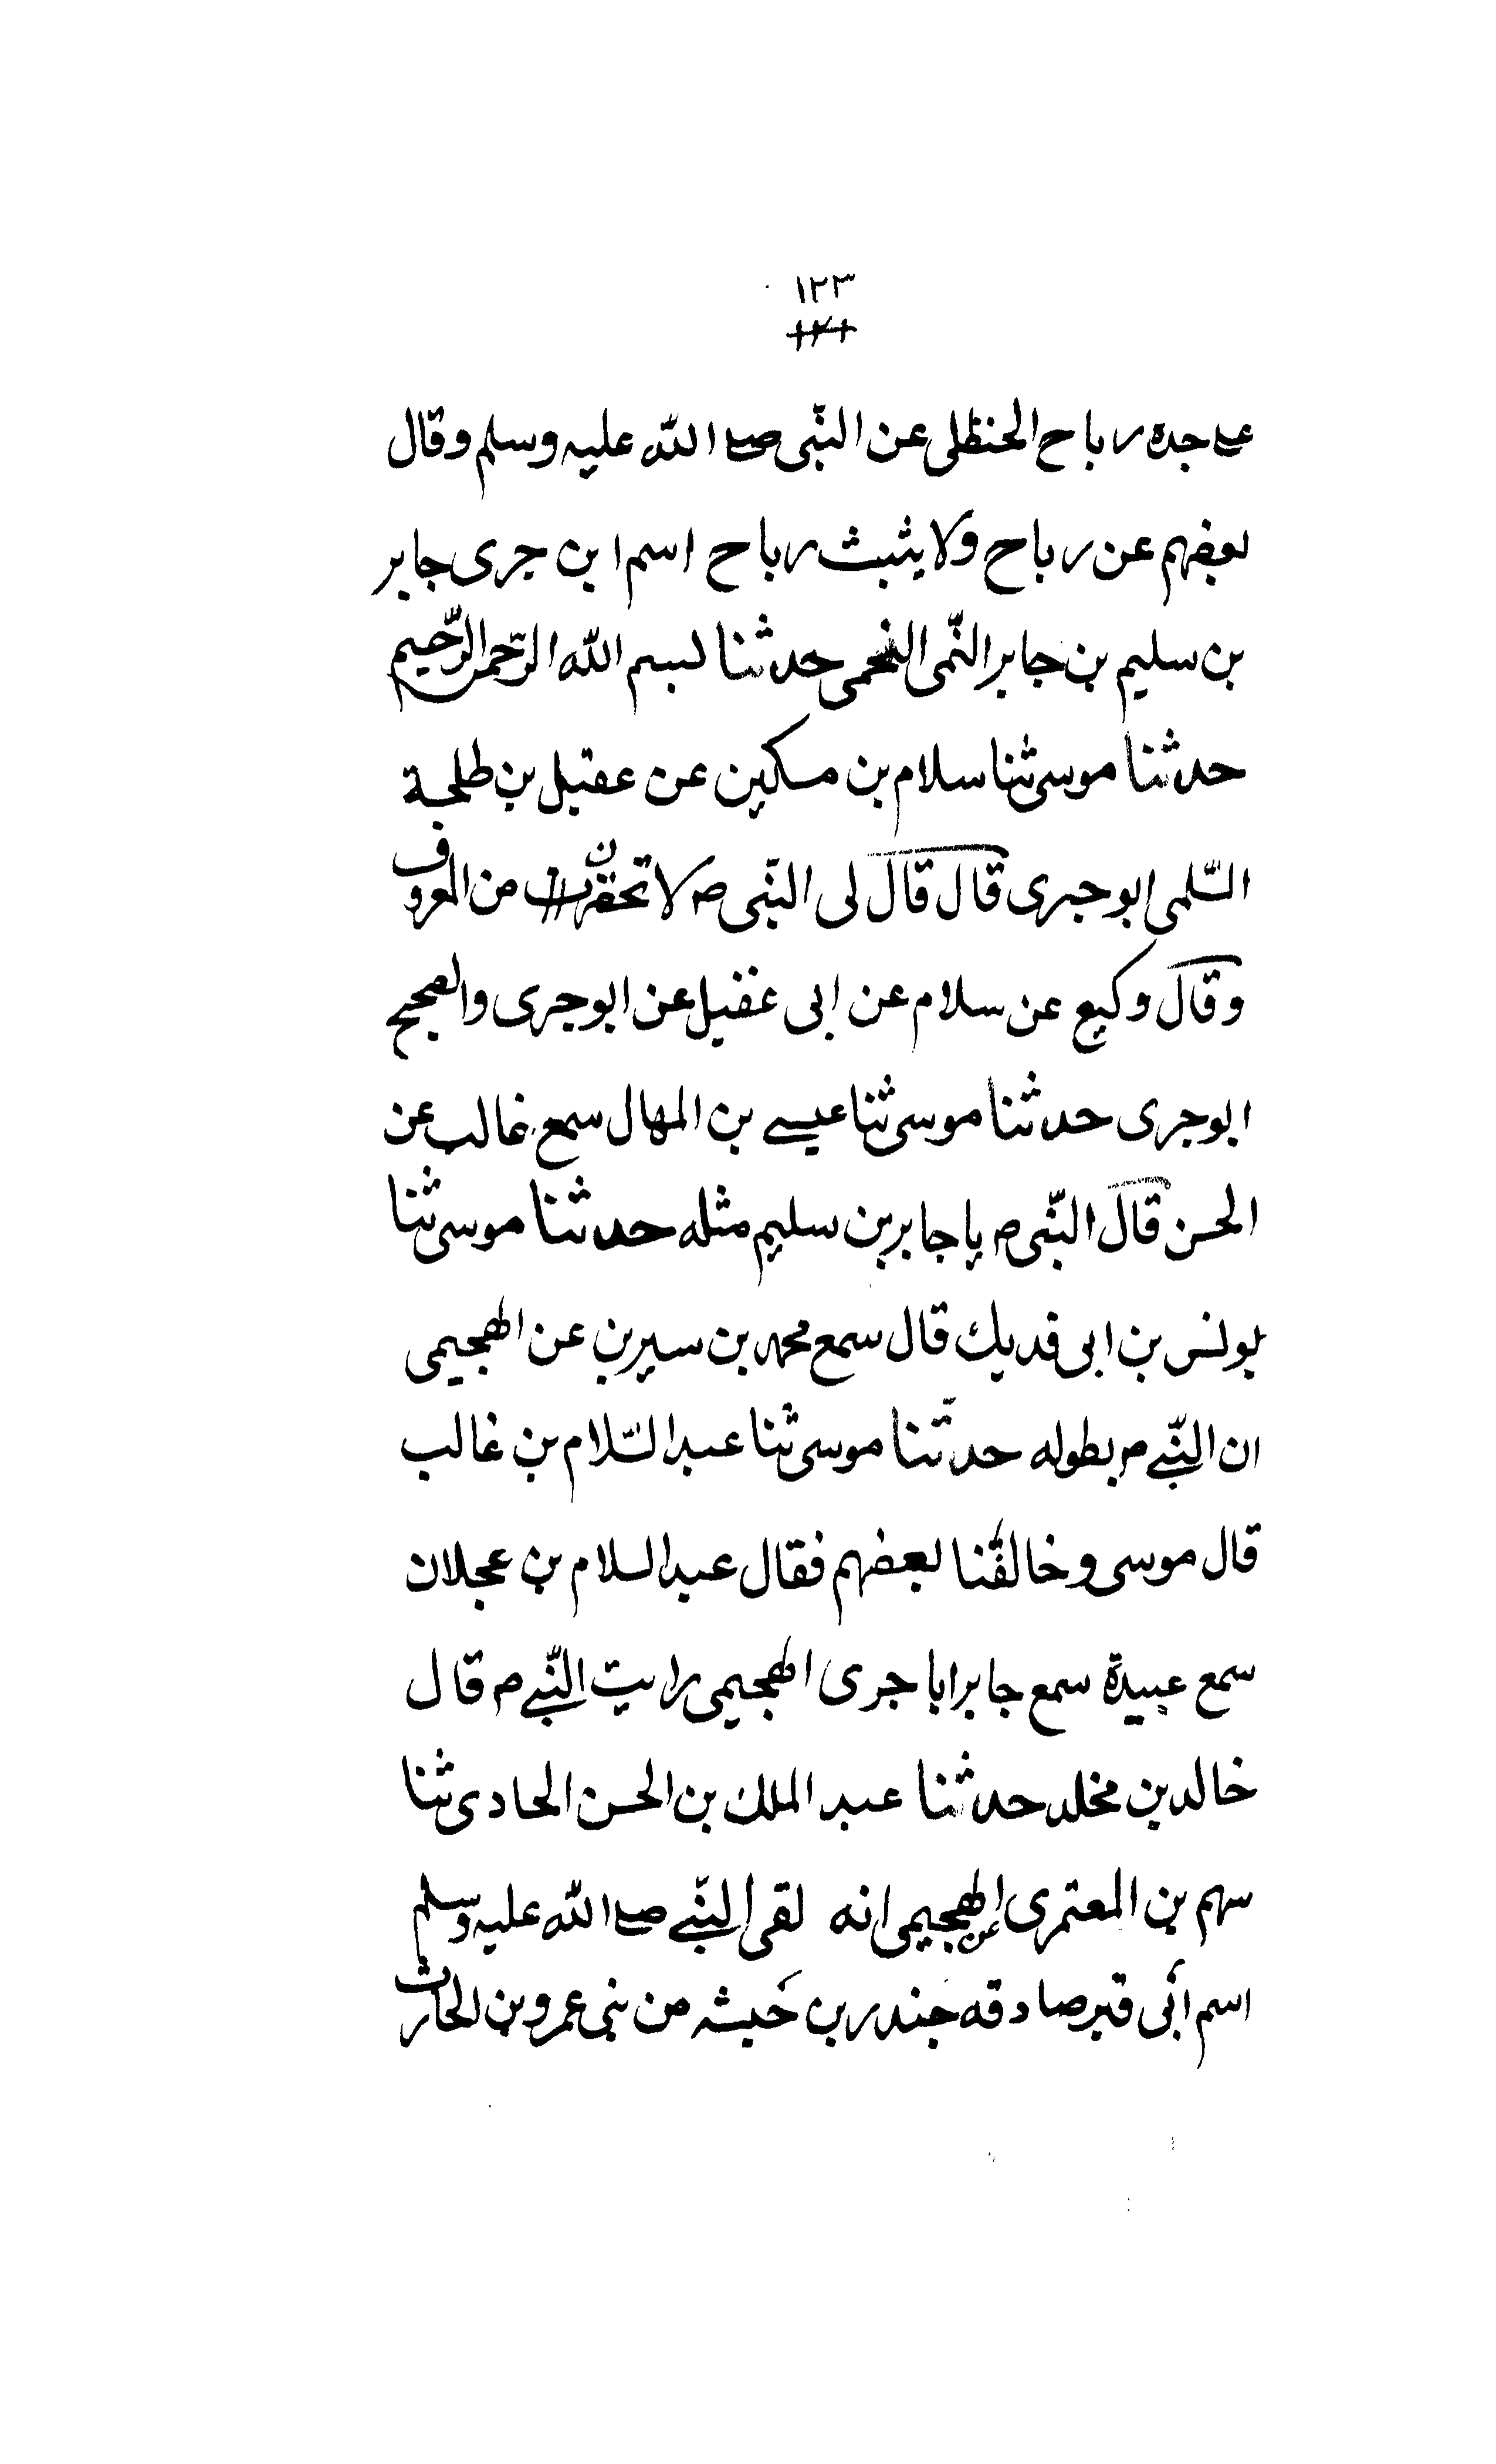 ١٢٣
١٢١
على جده رباح الحنظلى عن النّبى صلى اللّه عليه وسلم وقال
بعضهم عن رباح ولا يثبت رباح اسم ابن جرى جابر
بن سليم بن جابر النّمى النحمى حدثنا بسم اللّه الرّحمن الرّحيم
حدثنا موسى ثنا سلام بن مسكين عن عقيل بن طلحة
السّلمى ابو جرى قال قال لى النّبى ص لا تحقرن من المعروف
وقال وكيع عن سلام عن ابى عقيل عن ابو جرى والصحيح
ابو جرى حدثنا موسى ثنا عيسے بن المهال سمع غالب عن
الحسن قال النّبى ص يا جابر بن سليم مثله حدثنا موسى ثنا
يونس بن ابى فديك قال سمع محمد بن سيرين عن الهجيمى
ان النّبے ص بطوله حدثنا موسى ثنا عبد السّلام بن غالب
قال موسى و خالفنا بعضهم فقال عبد السلام بن عجلان
سمع عبيدة سمع جابرا ابا جرى الهجيمى رايت النّبے ص قال
خالد بن مخلد حدثنا عبد الملك بن الحسن الحادى ثنا
سهم بن المعتمرى عن الهجيمى انه لقى النّبے صلى اللّه عليه وسلم
اسم أبى قبرصادقه جندر بن خيشه من بنى عمرو بن الحارث